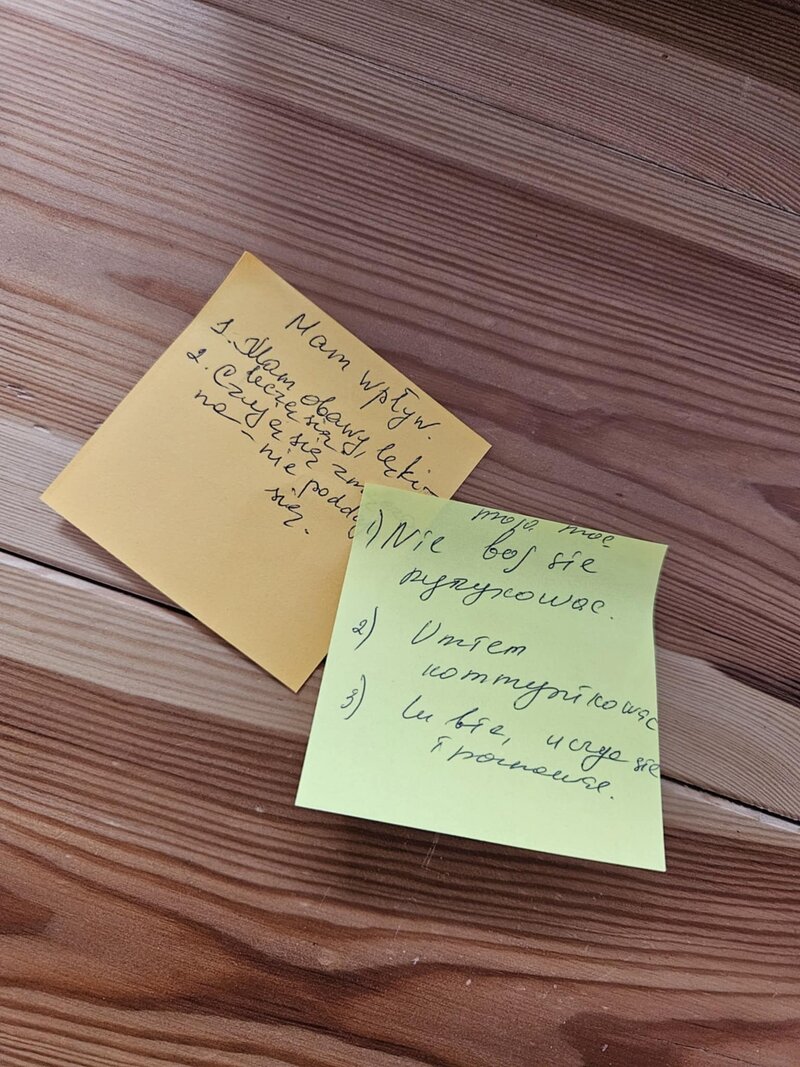 Mam wpływ.
1. Mam obawy, lęki -
leczę się
2. Czuję się zm
na - nie podda
się.
moja moc
1) Nie boj sie
ryzykowac.
2) Umiem
kommunikowac
3) Lu bie, uczyc sie
i pracowac.